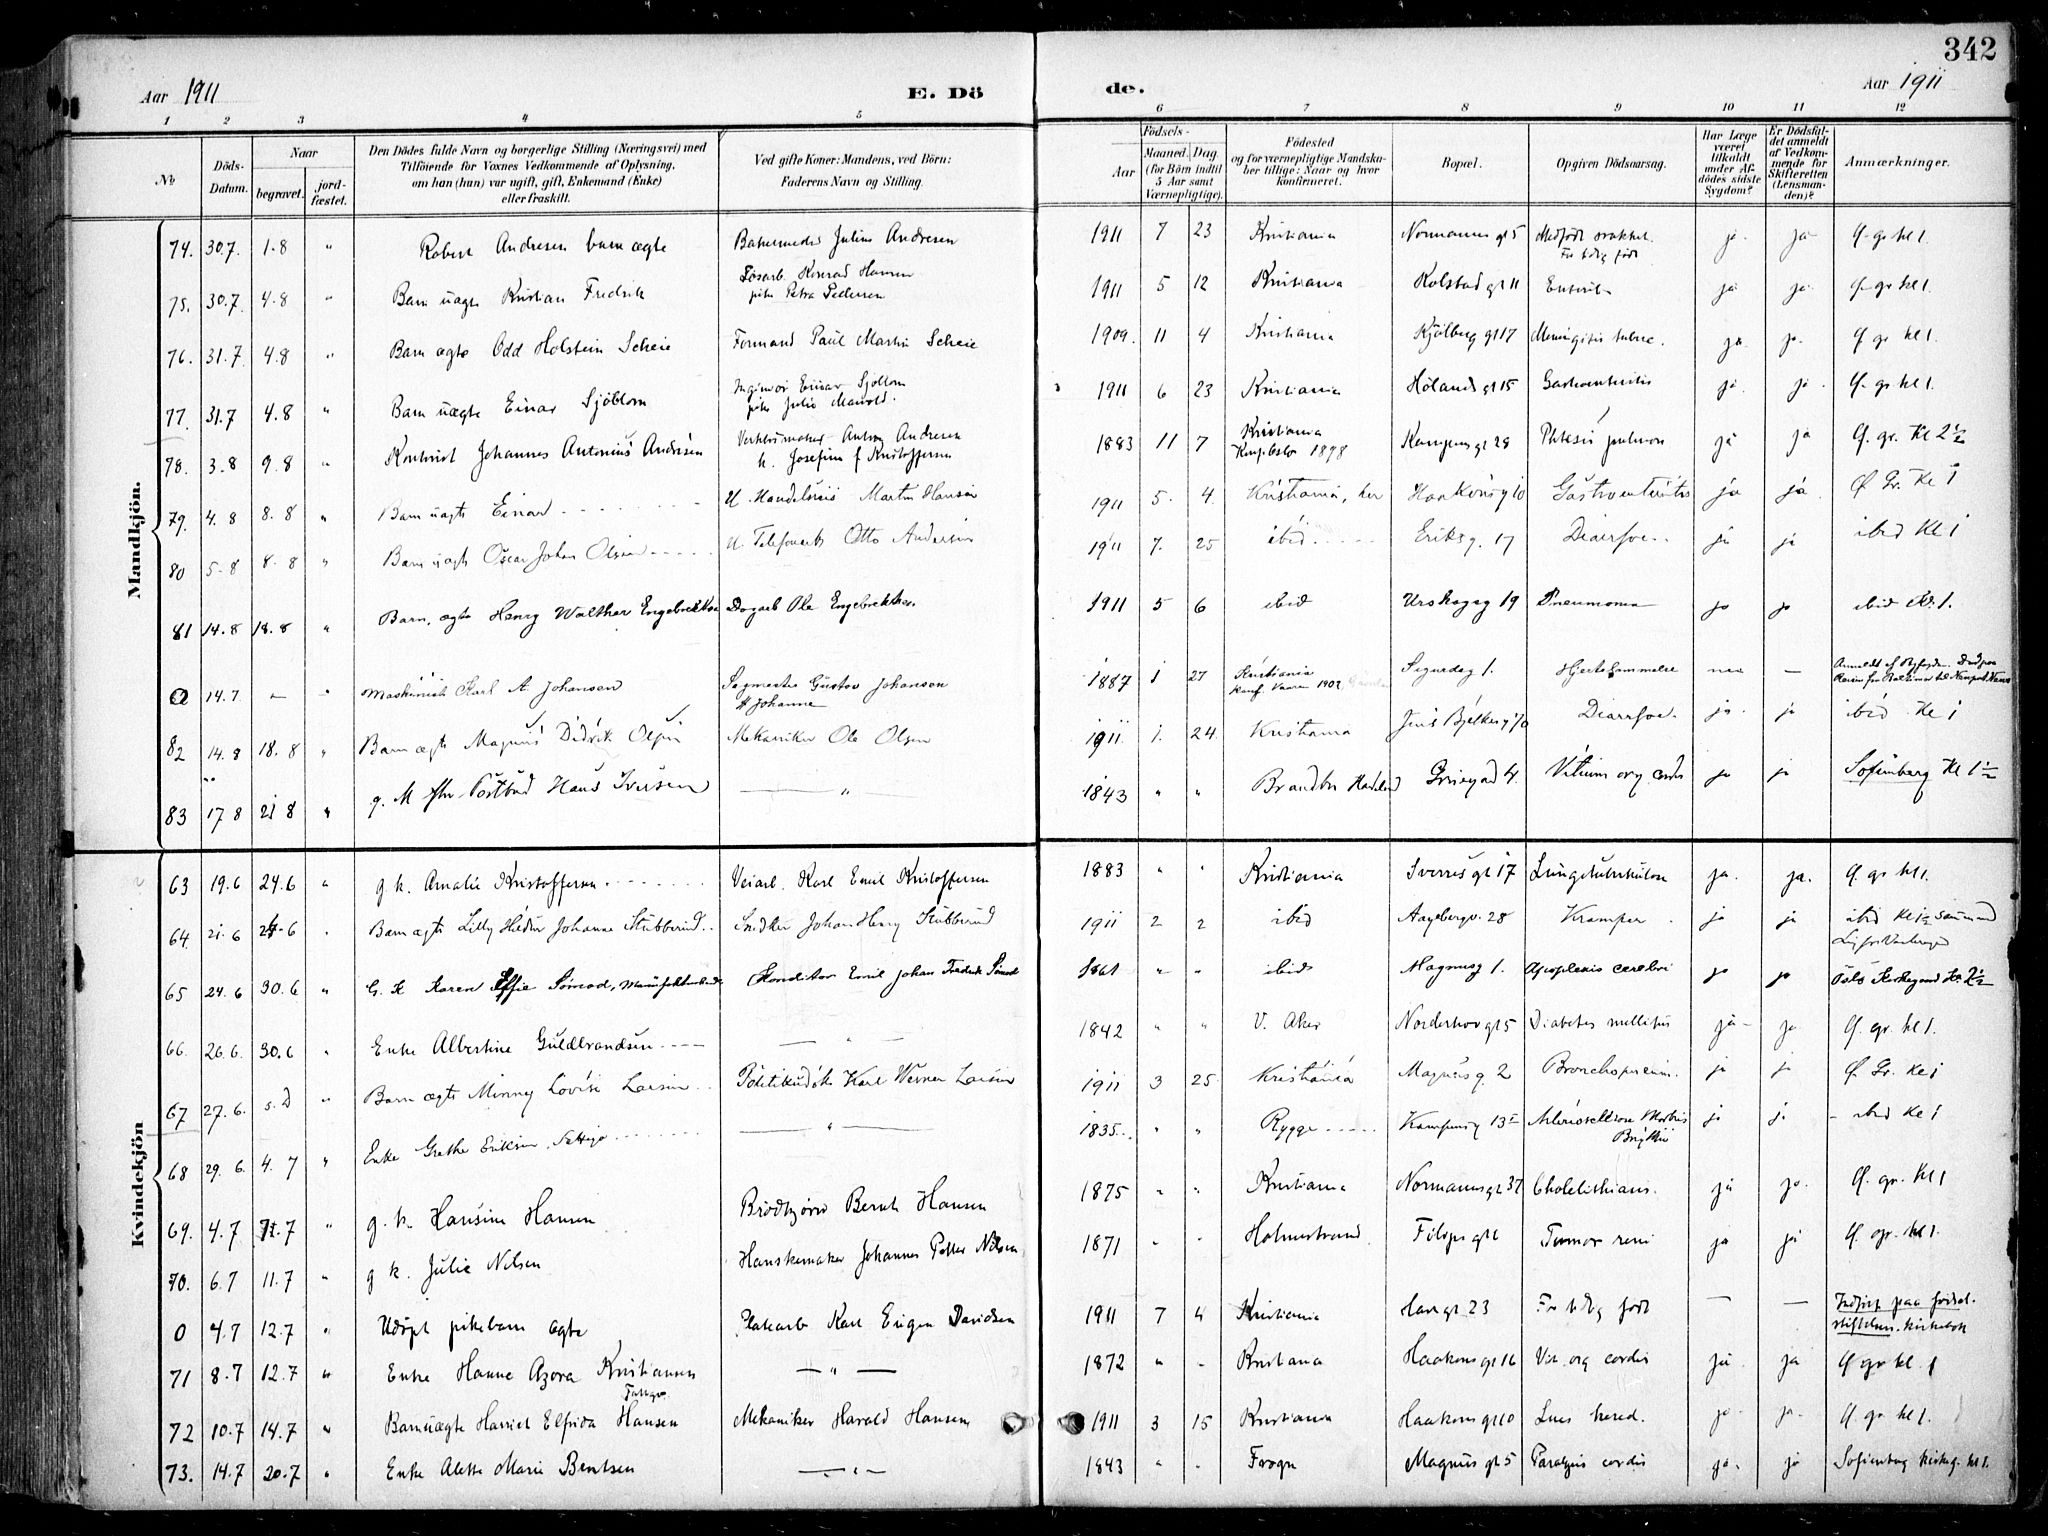 342
Aar 1911
E. Dö
de.
Aar 1911
1 2 3 4 5 6 7 8 9 10 11 12
№
Döds-Datum.
Naar
begravet.
jord-fæstet.
Den Dödes fulde Navn og borgerlige Stilling (Næringsvei) med
Tilföiende for Voxnes Vedkommende af Oplysning,
om han (hun) var ugift, gift, Enkemand (Enke)
eller fraskilt.
Ved gifte Koner: Mandens, ved Börn:
Faderens Navn og Stilling.
Födsels-
Aar
Maaned. Dag
(for Börn indtil
5 Aar samt
Værnepligtige).
Födested
og for værnepligtige Mandska-
ber tillige: Naar og hvor
konfirmeret.
Bopæl.
Opgiven Dödsaarsag.
Har Læge
været
tilkaldt
under Af-
dödes sidste
Sygdom?
Er Dödsfal-
det anmeldt
af Vedkom-
mende for
Skifteretten
(Lensman-
den)?
Anmærkninger.
Mandkjön.
74. 30.7. 1.8 " Robert Andresen barn ægte Julius Andresen 1911 7 23 Kristiania Normanns gt 5 Medfødt For tidlig født ja ja Ø. gr. kl 1.
75. 30.7 4.8 " Barn uægte Kristian Fredrik Løsarb. Konrad Hansen
pike Petra Pedersen 1911 5 12 Kristiania Kolstad gt 11 ja ja Ø. gr kl 1.
76. 31.7 4.8 " Barn ægte Odd Holstein Scheie Formand Paul Martin Scheie 1909. 11 4 Kristiania Kjølberg gt 17 Meningitis tuberc. ja. ja. Ø gr kl 1.
77. 31.7 4.8 " Barn uægte Einar Sjöblom Einar Sjöblom
pike Julie 1911 6 23 Kristiania Hølands gt 15 Gastroenteritis ja. ja. Ø. gr kl 1.
78. 3.8 9.8 " Johannes Antonius Andresen Anton Andresen
h. Josefine f Kristoffersen 1883 11 7 Kristiania
1898 Kampens gt 28 Phtisis pulmon ja ja Ø. gr. Kl 2½
79. 4.8 8.8 " Barn uægte Einar U. Martin Hansen 1911 5. 4. Kristiania, her Haakonsg 10 Gastroenteritis ja ja. Ø Gr. Kl 1
80 5.8 8.8 " Barn uægte Oscar Johan Olsen U. Otto Andersen 1911 7. 25 ibid Eriksg. 17 Diarrhoe. ja ja ibid Kl 1
81 14.8 18.8 " Barn, ægte Henry Walther Engebrektsen Dagarb Ole Engebrektsen. 1911 5 6 ibid Urskogsg 19 Pneumonia ja ja ibid Kl. 1.
0 14.7 — " Maskinist Karl A. Johansen Gustav Johansen
Johanne 1887 1 27 Kristiania
1902 Sigurdsg 1. Hjertelammelse nei —
82 14.8 18.8 " Barn ægte Magnus Didrik Olsen Mekaniker Ole Olsen 1911. 1. 24 Kristiania Jens Bjelkes g 70 Diarrhoe. ja. ja ibid Kl 1
83 17 8 21 8 " g. M Postbud Hans Iversen — " 1843 " " Brandbu Hadeland 4. Vitium org cordis ja ja Sofienberg Kl 1½
Kvindekjön
63 19.6 24.6 " g. k. Amalie Kristoffersen Veiarb. Karl Emil Kristoffersen 1883 " " Kristiania Sverres gt 17 Lungetuberkulose ja. ja. Ø. gr kl 1.
64. 21.6 24.6 " Barn ægte Lilly Johanne Stubberud Snedker Johan Henry Stubberud 1911 2 2 ibid Aagebergv. 28 Kramper ja ja ibid Kl 1½
65 24.6 30.6 " G. K Karen Konditor Emil Johan Fredrik 1861 " " ibid Magnusg 1. Apoplexis cerebri ja ja Oslo Kirkegaard Kl. 2½
66. 26.6. 30.6 " Enke Albertine Guldbrandsen — " — 1842 " " V. Aker Norderhov gt 5 Diabetes mellitus ja ja Ø. gr. kl 1.
67 27.6. s.D " Barn ægte Minny Lovise Larsen Karl Werner Larsen 1911 3 25 Kristiania Magnus g. 2 ja ja Ø. Gr. Kl 1
68 29.6. 4.7 " Enke Grethe Eriksen — " — 1835 " " Rygge Kampensg 13 Morbus Brightii ja ja ibid Kl 1
69. 4.7 11.7 " g. k. Hansine Hansen Bernt Hansen 1875 " " Kristiania Normanns gt 37 Cholelithiasis. ja ja. Ø. gr. kl 1
70. 6.7 11.7 " g k. Julie Nilsen Hanskemaker Johannes Petter Nilsen 1871 " " Holmestrand Filips gt 6 Tumor reni ja ja Ø. gr. kl 1.
0 4.7 12.7 " Udöpt pikebarn ægte Platearb Karl Eugen Davidsen 1911 7 4 Kristiania Hare gt 23 For tidlig født — — Indført paa fødsel.
stiftelsens kirkebok
71 8.7 12.7 " Enke Hanne Azora Kristiansen — " — 1872 " " Kristiania Haakons gt 16 Vit. org cordis ja ja Ø gr kl. 1
72 10.7 14.7 " Barn uægte Harriet Elfrida Hansen Mekaniker Harald Hansen 1911 3 15 Kristiania Haakons gt 10 Lues hered. ja. ja. Ø. gr kl 1.
73. 14.7 20.7 " Enke Alette Marie Bentsen — " — 1843 " " Frogn Magnus gt 5 Paralysis cordis ja. ja Sofienberg kirkeg. kl 1.